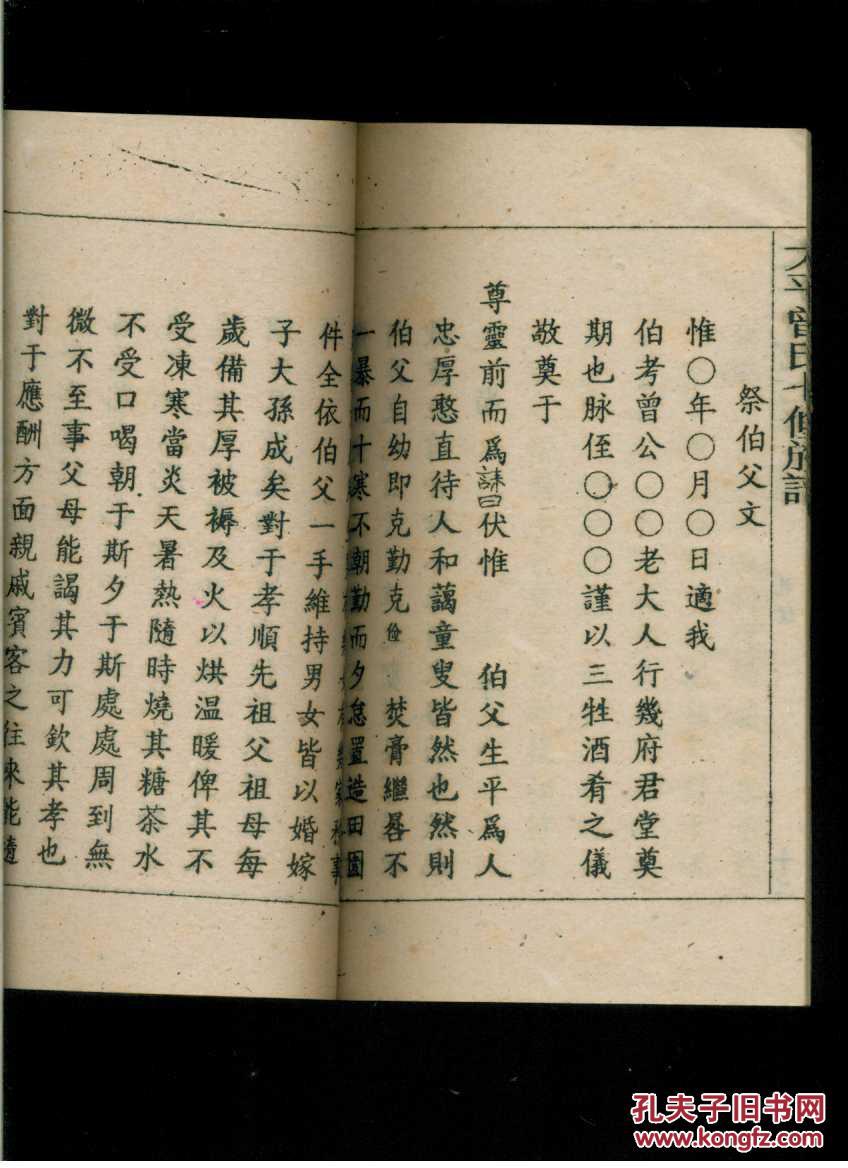 太平曾氏七修族譜
祭伯父文
惟〇年〇月〇日適我
伯考曾公〇〇老大人行幾府君堂奠
期也脉侄〇〇〇謹以三牲酒肴之儀
敬奠于
尊靈前而爲誄曰伏惟 伯父生平爲人
忠厚憨直待人和藹童叟皆然也然則
伯父自幼即克勤克儉 焚膏繼晷不
一暴而十寒不朝勤而夕怠置造田園
件全依伯父一手維持男女皆以婚嫁
子大孫成矣對于孝順先祖父祖母每
歲備其厚被褥及火以烘温暖俾其不
受凍寒當炎天暑熱隨時燒其糖茶水
不受口喝朝于斯夕于斯處處周到無
微不至事父母能謁其力可欽其孝也
對于應酬方面親戚賓客之往來能隨
孔夫子旧书网
www.kongfz.com